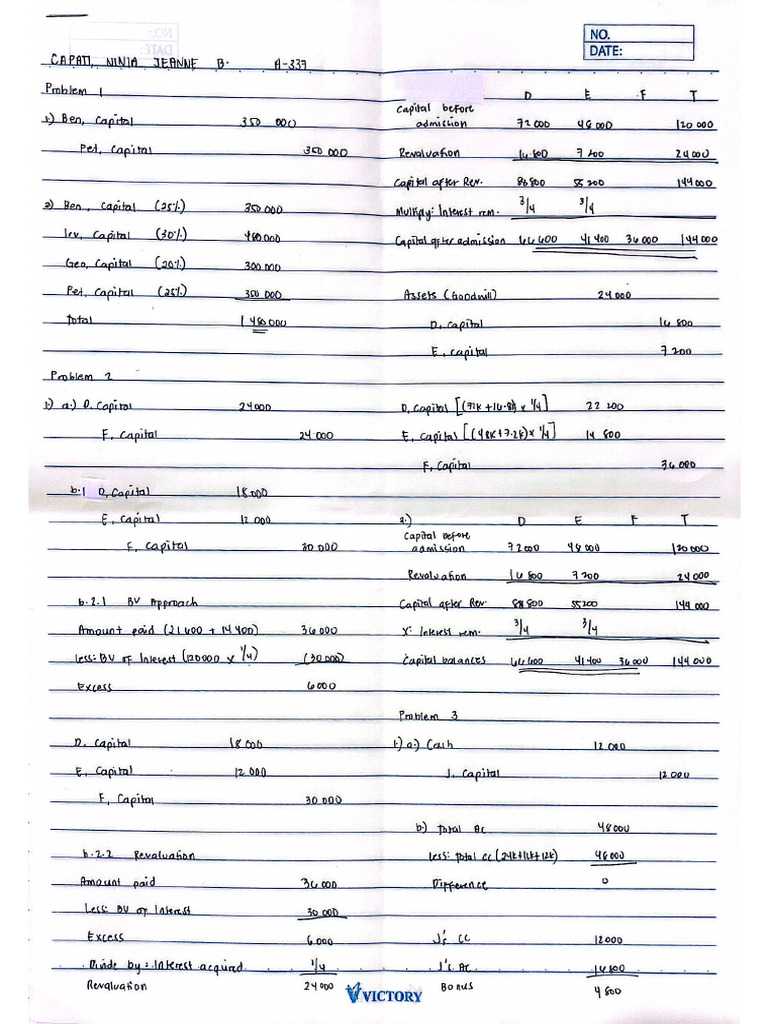 NO.
DATE:
CAPATI, NINIA JEANNE B. A-337
Problem 1
1.) Ben, Capital 350 000
Pet, Capital 350 000
2) Ben, Capital (25%) 350 000
Irv, Capital (30%) 480 000
Geo, Capital (20%) 300 000
Pet, Capital (25%) 350 000
Total 1 480 000
Problem 2
1.) a.) D, Capital 24 000
F, Capital 24 000
b.1 D, Capital 18 000
E, Capital 12 000
F, Capital 30 000
b.2.1 BV Approach
Amount paid (21 600 + 14 400) 36 000
less: BV of Interest (120000 x 1/4) (30 000)
Excess 6 000
D, Capital 18 000
E, Capital 12 000
F, Capital 30 000
b.2.2 Revaluation
Amount paid 36 000
Less: BV of Interest 30 000
Excess 6 000
Divide by: Interest acquired 1/4
Revaluation 24 000
D E F T
Capital before
admission 72 000 48 000 120 000
Revaluation 16 800 7 200 24 000
Capital after Rev. 88 800 55 200 144 000
Multiply: Interest rem. 3/4 3/4
Capital after admission 66 600 41 400 36 000 144 000
Assets (Goodwill) 24 000
D, Capital 16 800
E, Capital 7 200
D, Capital [(72k + 16.8) x 1/4] 22 200
E, Capital [(48k + 7.2k) x 1/4] 14 800
F, Capital 36 000
2.) D E F T
Capital before
admission 72 000 48 000 120 000
Revaluation 16 800 7 200 24 000
Capital after Rev. 88 800 55 200 144 000
X: Interest rem. 3/4 3/4
Capital balances 66 600 41 400 36 000 144 000
Problem 3
1.) a.) Cash 12 000
J, Capital 12 000
b.) Total AC 48 000
less: Total CC (24k+12k+12k) 48 000
Difference 0
J's CC 12 000
J's AC 16 800
Bonus 4 800
VICTORY